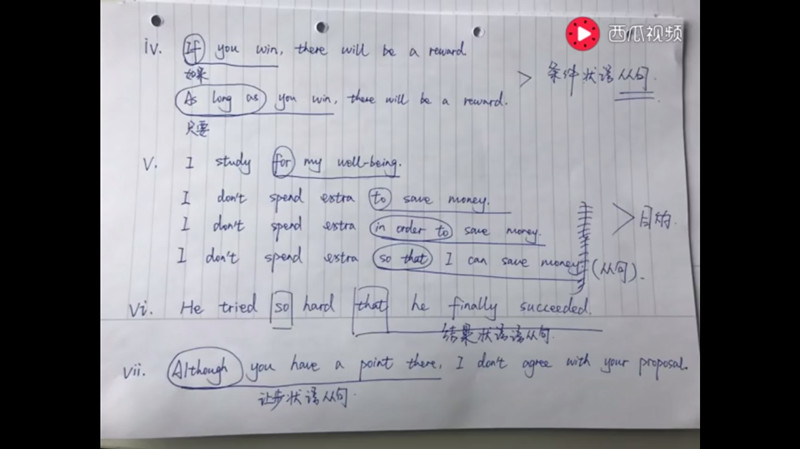 西瓜视频
iv. If you win, there will be a reward
如果
As long as you win, there will be a reward.
只要
> 条件状语从句.
v. I study for my well-being.
I don't spend extra to save money.
I don't spend extra in order to save money.
I don't spend extra so that I can save money (从句).
> 目的.
vi. He tried so hard that he finally succeeded.
结果状语语从句.
vii. Although you have a point there, I don't agree with your proposal.
让步状语从句.